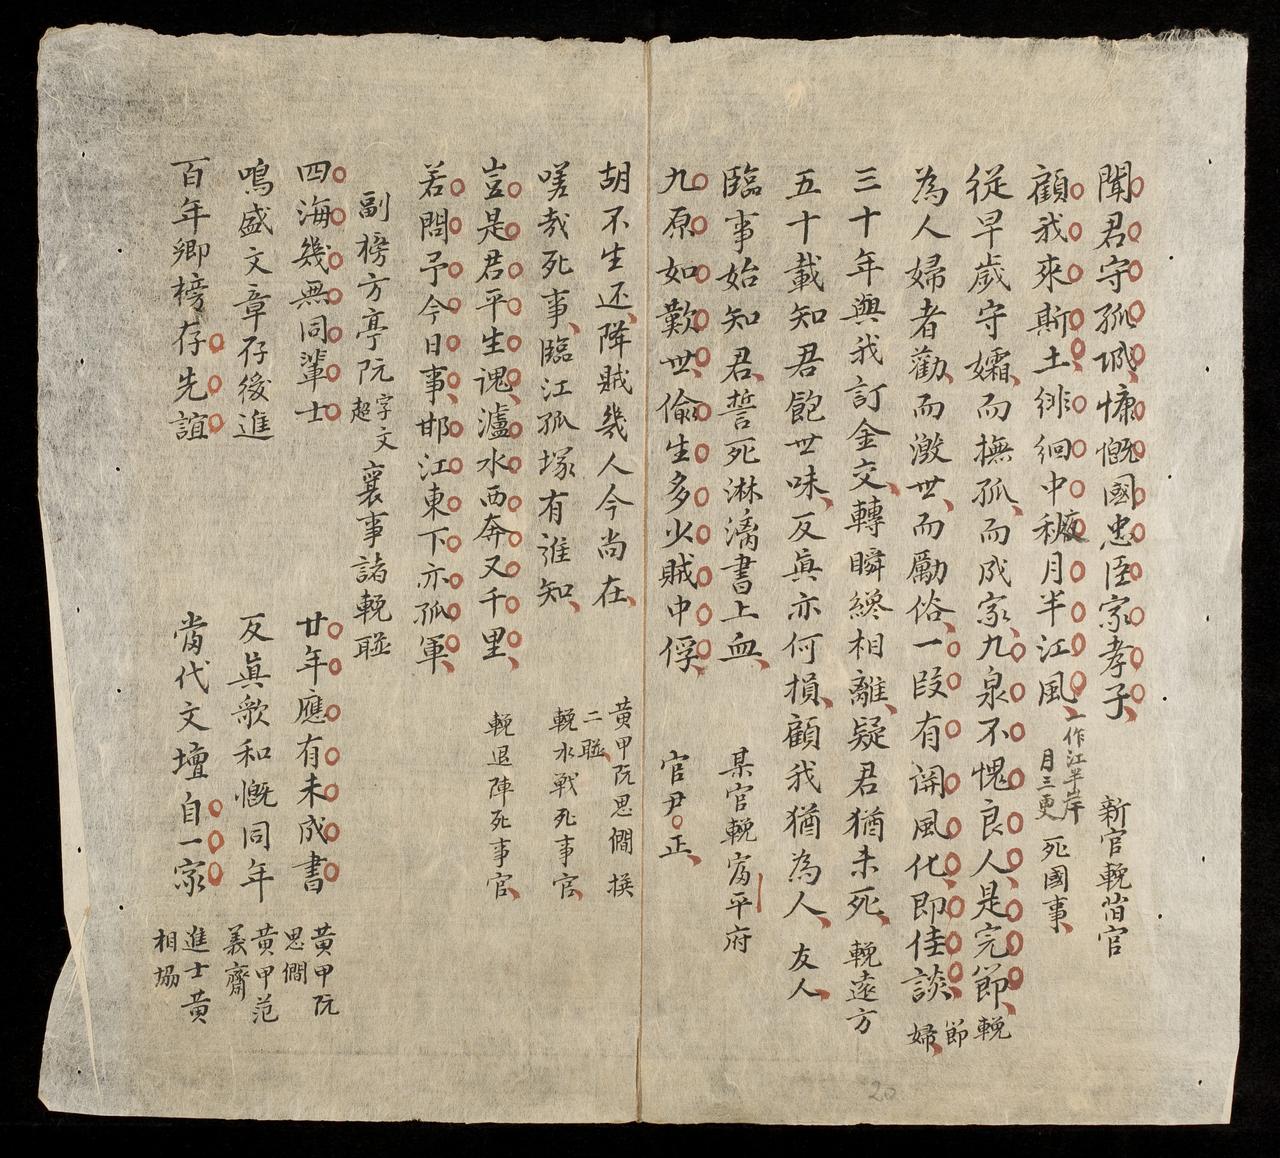 聞君守孤城慷慨國忠臣家孝子 新官輓故官
顧我來斯土徘徊中秋夜月半江風 一作江半岸月三更 死國事
從早歲守孀而撫孤而成家九泉不愧良人是完節 輓節婦
為人婦者勸而激世而勵俗一段有關風化即佳談
三十年與我訂金交轉瞬終相離疑君猶未死 輓遠方
五十載知君飽世味反眞亦何損顧我猶為人 友人
臨事始知君誓死淋漓書上血 某官輓富平府
九原如歎世偸生多少賊中俘 官尹正
胡不生还降賊幾人今尚在 黃甲阮思僩撰
嗟哉死事臨江孤塚有誰知 二聯輓水戰死事官
豈是君平生愧瀘水西奔又千里 輓退陣死事官
若問予今日事邯江東下亦孤軍
副榜方亭阮文超字 襄事諸輓聯
四海幾無同輩士 廿年應有未成書 黃甲阮思僩
鳴盛文章存後進 反眞歌和慨同年 黃甲范義齋
百年鄉榜存先誼 當代文壇自一家 進士黃相協
20